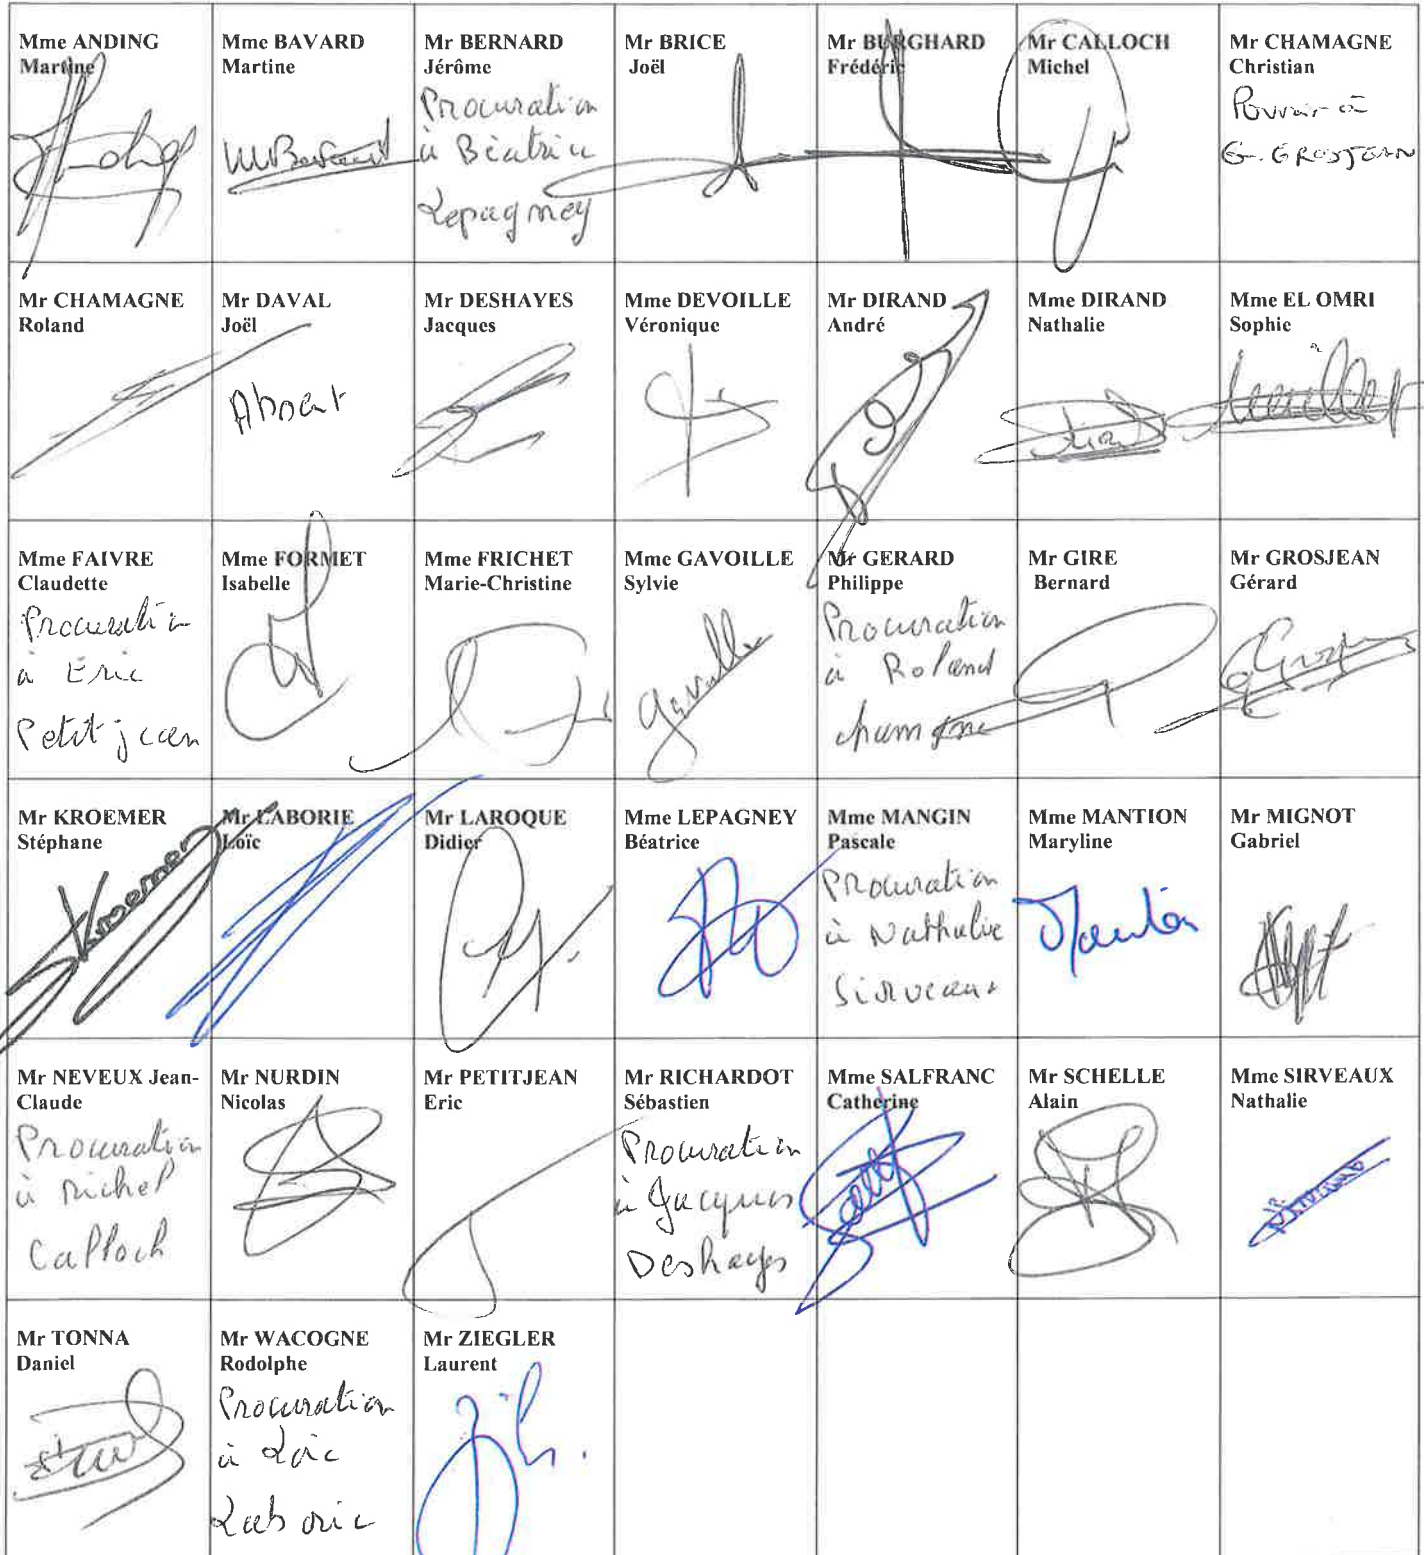 Mme ANDING
Martine
Mme BAVARD
Martine
Mr BERNARD
Jérôme
Procuration
à Béatrice
Lepagney
Mr BRICE
Joël
Mr BURGHARD
Frédéric
Mr CALLOCH
Michel
Mr CHAMAGNE
Christian
Pouvoir à
G. GROSJEAN
Mr CHAMAGNE
Roland
Mr DAVAL
Joël
Absent
Mr DESHAYES
Jacques
Mme DEVOILLE
Véronique
Mr DIRAND
André
Mme DIRAND
Nathalie
Mme EL OMRI
Sophie
Mme FAIVRE
Claudette
Procuration
à Eric
Petitjean
Mme FORMET
Isabelle
Mme FRICHET
Marie-Christine
Mme GAVOILLE
Sylvie
Gavoille
Mr GERARD
Philippe
Procuration
à Roland
chamagne
Mr GIRE
Bernard
Mr GROSJEAN
Gérard
Mr KROEMER
Stéphane
Kroemer
Mr LABORIE
Loïc
Mr LAROQUE
Didier
Mme LEPAGNEY
Béatrice
Mme MANGIN
Pascale
Procuration
à Nathalie
Sirveaux
Mme MANTION
Maryline
Mantion
Mr MIGNOT
Gabriel
Mr NEVEUX Jean-
Claude
Procuration
à Michel
Calloch
Mr NURDIN
Nicolas
Mr PETITJEAN
Eric
Mr RICHARDOT
Sébastien
Procuration
à Jacques
Deshayes
Mme SALFRANC
Catherine
Mr SCHELLE
Alain
Mme SIRVEAUX
Nathalie
Mr TONNA
Daniel
Mr WACOGNE
Rodolphe
Procuration
à Loïc
Laborie
Mr ZIEGLER
Laurent